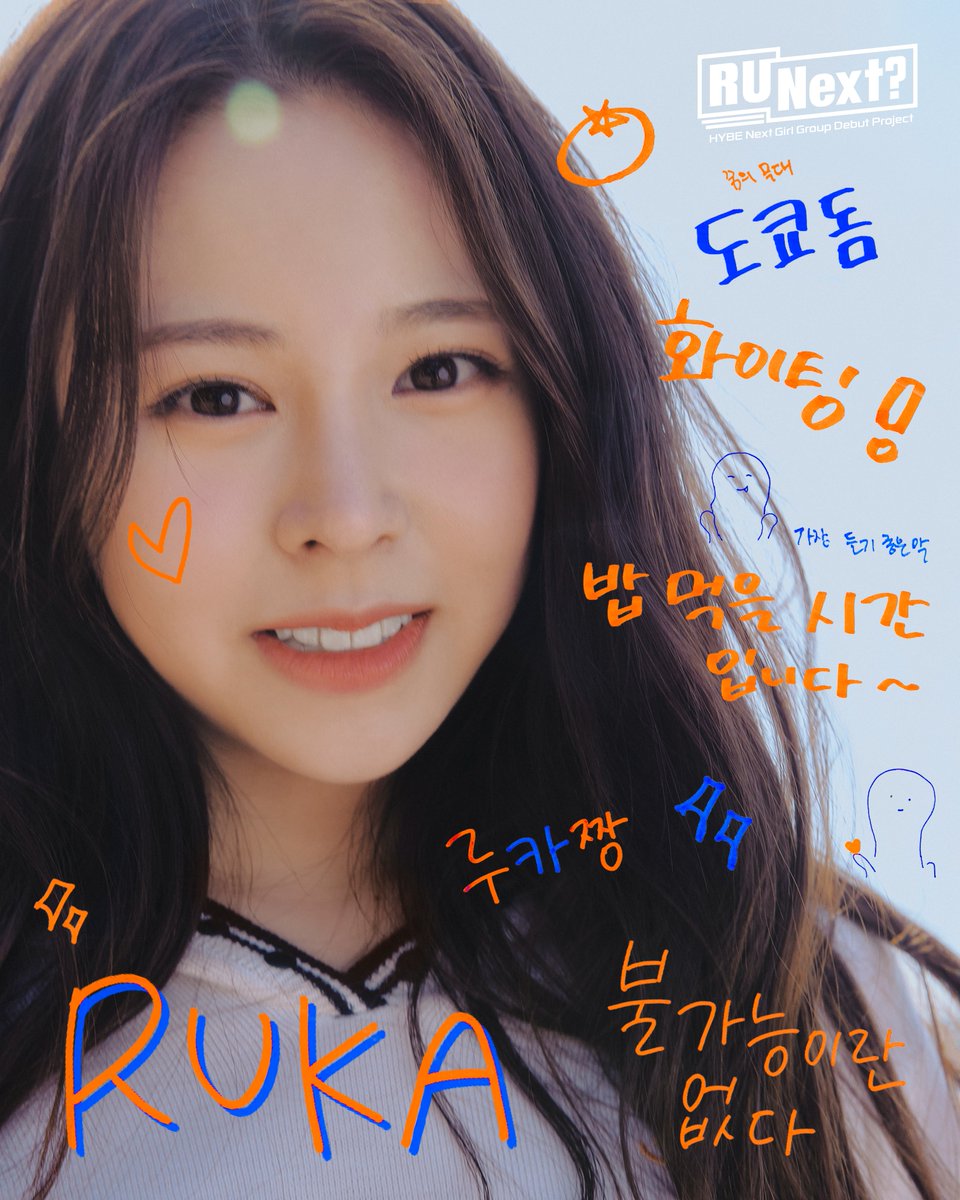 RU Next?
HYBE Next Girl Group Debut Project
꿈의 무대
도쿄돔
화이팅!
가장 듣기 좋은 말
밥 먹을 시간
입니다~
루카짱
RUKA
불가능이란
없다